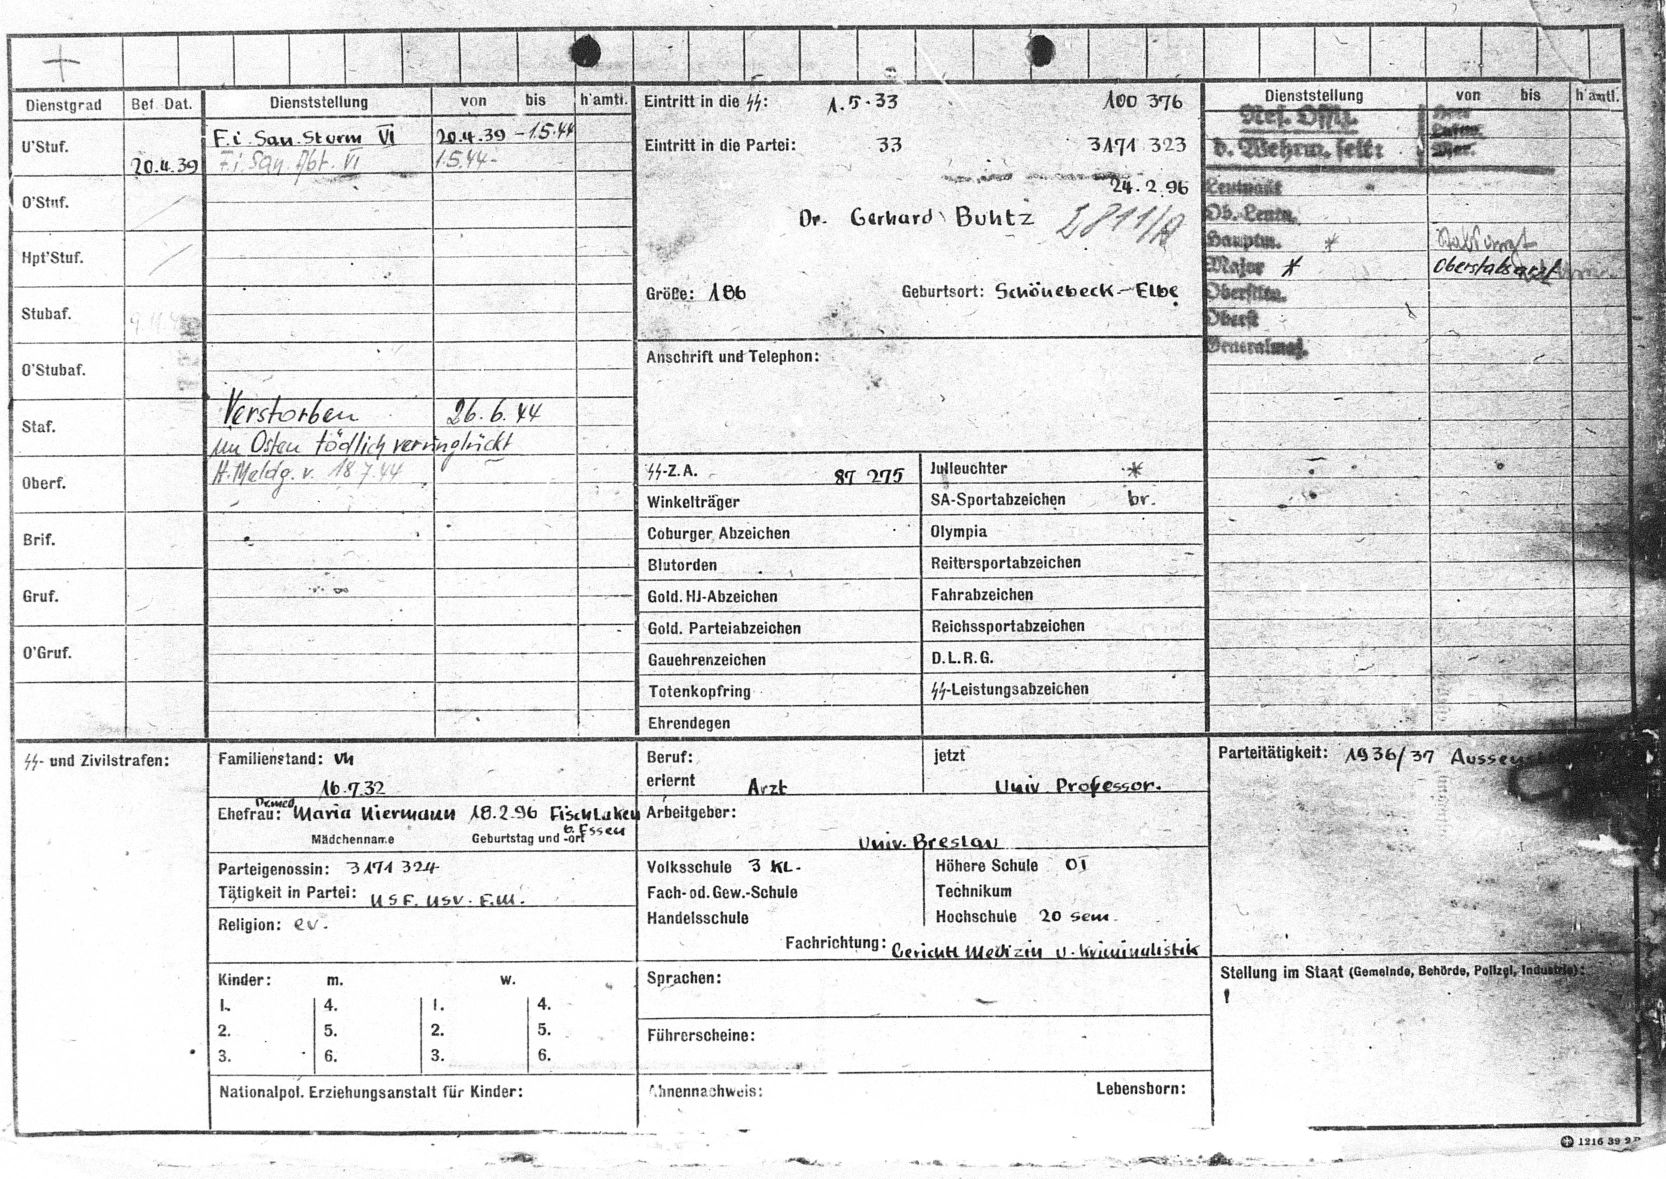 Dienstgrad Bef. Dat. Dienststellung von bis h'amtl.
U'Stuf. F. i. San. Sturm VI 20.4.39 - 1.5.44
20.4.39 F. i. San. Abt. VI 1.5.44-
O'Stuf.
Hpt'Stuf.
Stubaf.
O'Stubaf.
Staf. Verstorben 26.6.44
im Osten tödlich verunglückt
Oberf. lt. Meldg. v. 18.7.44
Brif.
Gruf.
O'Gruf.
Eintritt in die ᛋᛋ: 1.5.33 100 376
Eintritt in die Partei: 33 3171 323
24.2.96
Dr. Gerhard Buhtz
Größe: 186 Geburtsort: Schönebeck-Elbe
Anschrift und Telephon:
ᛋᛋ-Z.A. 87 275 Julleuchter *
Winkelträger SA-Sportabzeichen br.
Coburger Abzeichen Olympia
Blutorden Reitersportabzeichen
Gold. HJ-Abzeichen Fahrabzeichen
Gold. Parteiabzeichen Reichssportabzeichen
Gauehrenzeichen D.L.R.G.
Totenkopfring ᛋᛋ-Leistungsabzeichen
Ehrendegen
Dienststellung von bis h'amtl.
Res. Offz.
d. Wehrm. seit:
Leutnant
Ob. Leutn.
Hauptm. * Stabsarzt
Major * Oberstabsarzt
Oberstltn.
Oberst
Generalmaj.
ᛋᛋ- und Zivilstrafen:
Familienstand: vh
16.7.32
Dr. med
Ehefrau: Maria Niermann 18.2.96 Fischlaken
b. Essen
Mädchenname Geburtstag und -ort
Parteigenossin: 3171 324
Tätigkeit in Partei: NSF. NSV. F.M.
Religion: ev.
Kinder: m. w.
1. 4. 1. 4.
2. 5. 2. 5.
3. 6. 3. 6.
Nationalpol. Erziehungsanstalt für Kinder:
Beruf: jetzt
erlernt Arzt Univ Professor.
Arbeitgeber:
Univ. Breslau
Volksschule 3 Kl. Höhere Schule OI
Fach- od. Gew.-Schule Technikum
Handelsschule Hochschule 20 sem.
Fachrichtung: Gerichtl Medizin u. Kriminalistik
Sprachen:
Führerscheine:
Ahnennachweis: Lebensborn:
Parteitätigkeit: 1936/37
Stellung im Staat (Gemeinde, Behörde, Polizei, Industrie):
1216 39